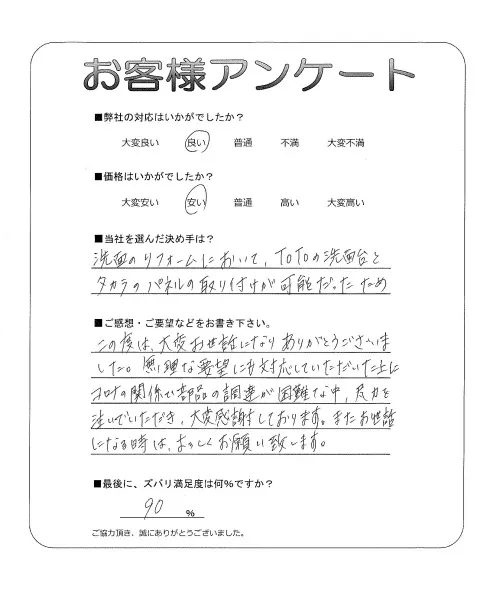 お客様アンケート
■弊社の対応はいかがでしたか？
大変良い 良い 普通 不満 大変不満
■価格はいかがでしたか？
大変安い 安い 普通 高い 大変高い
■当社を選んだ決め手は？
洗面のリフォームにおいて、TOTOの洗面台と
タカラのパネルの取り付けが可能だったため
■ご感想・ご要望などをお書き下さい。
この度は、大変お世話になりありがとうございま
した。無理な要望にも対応していただいた上に
コロナの関係で部品の調達が困難な中、尽力を
注いでいただき、大変感謝しております。またお世話
になる時は、よろしくお願い致します。
■最後に、ズバリ満足度は何%ですか？
90 %
ご協力頂き、誠にありがとうございました。